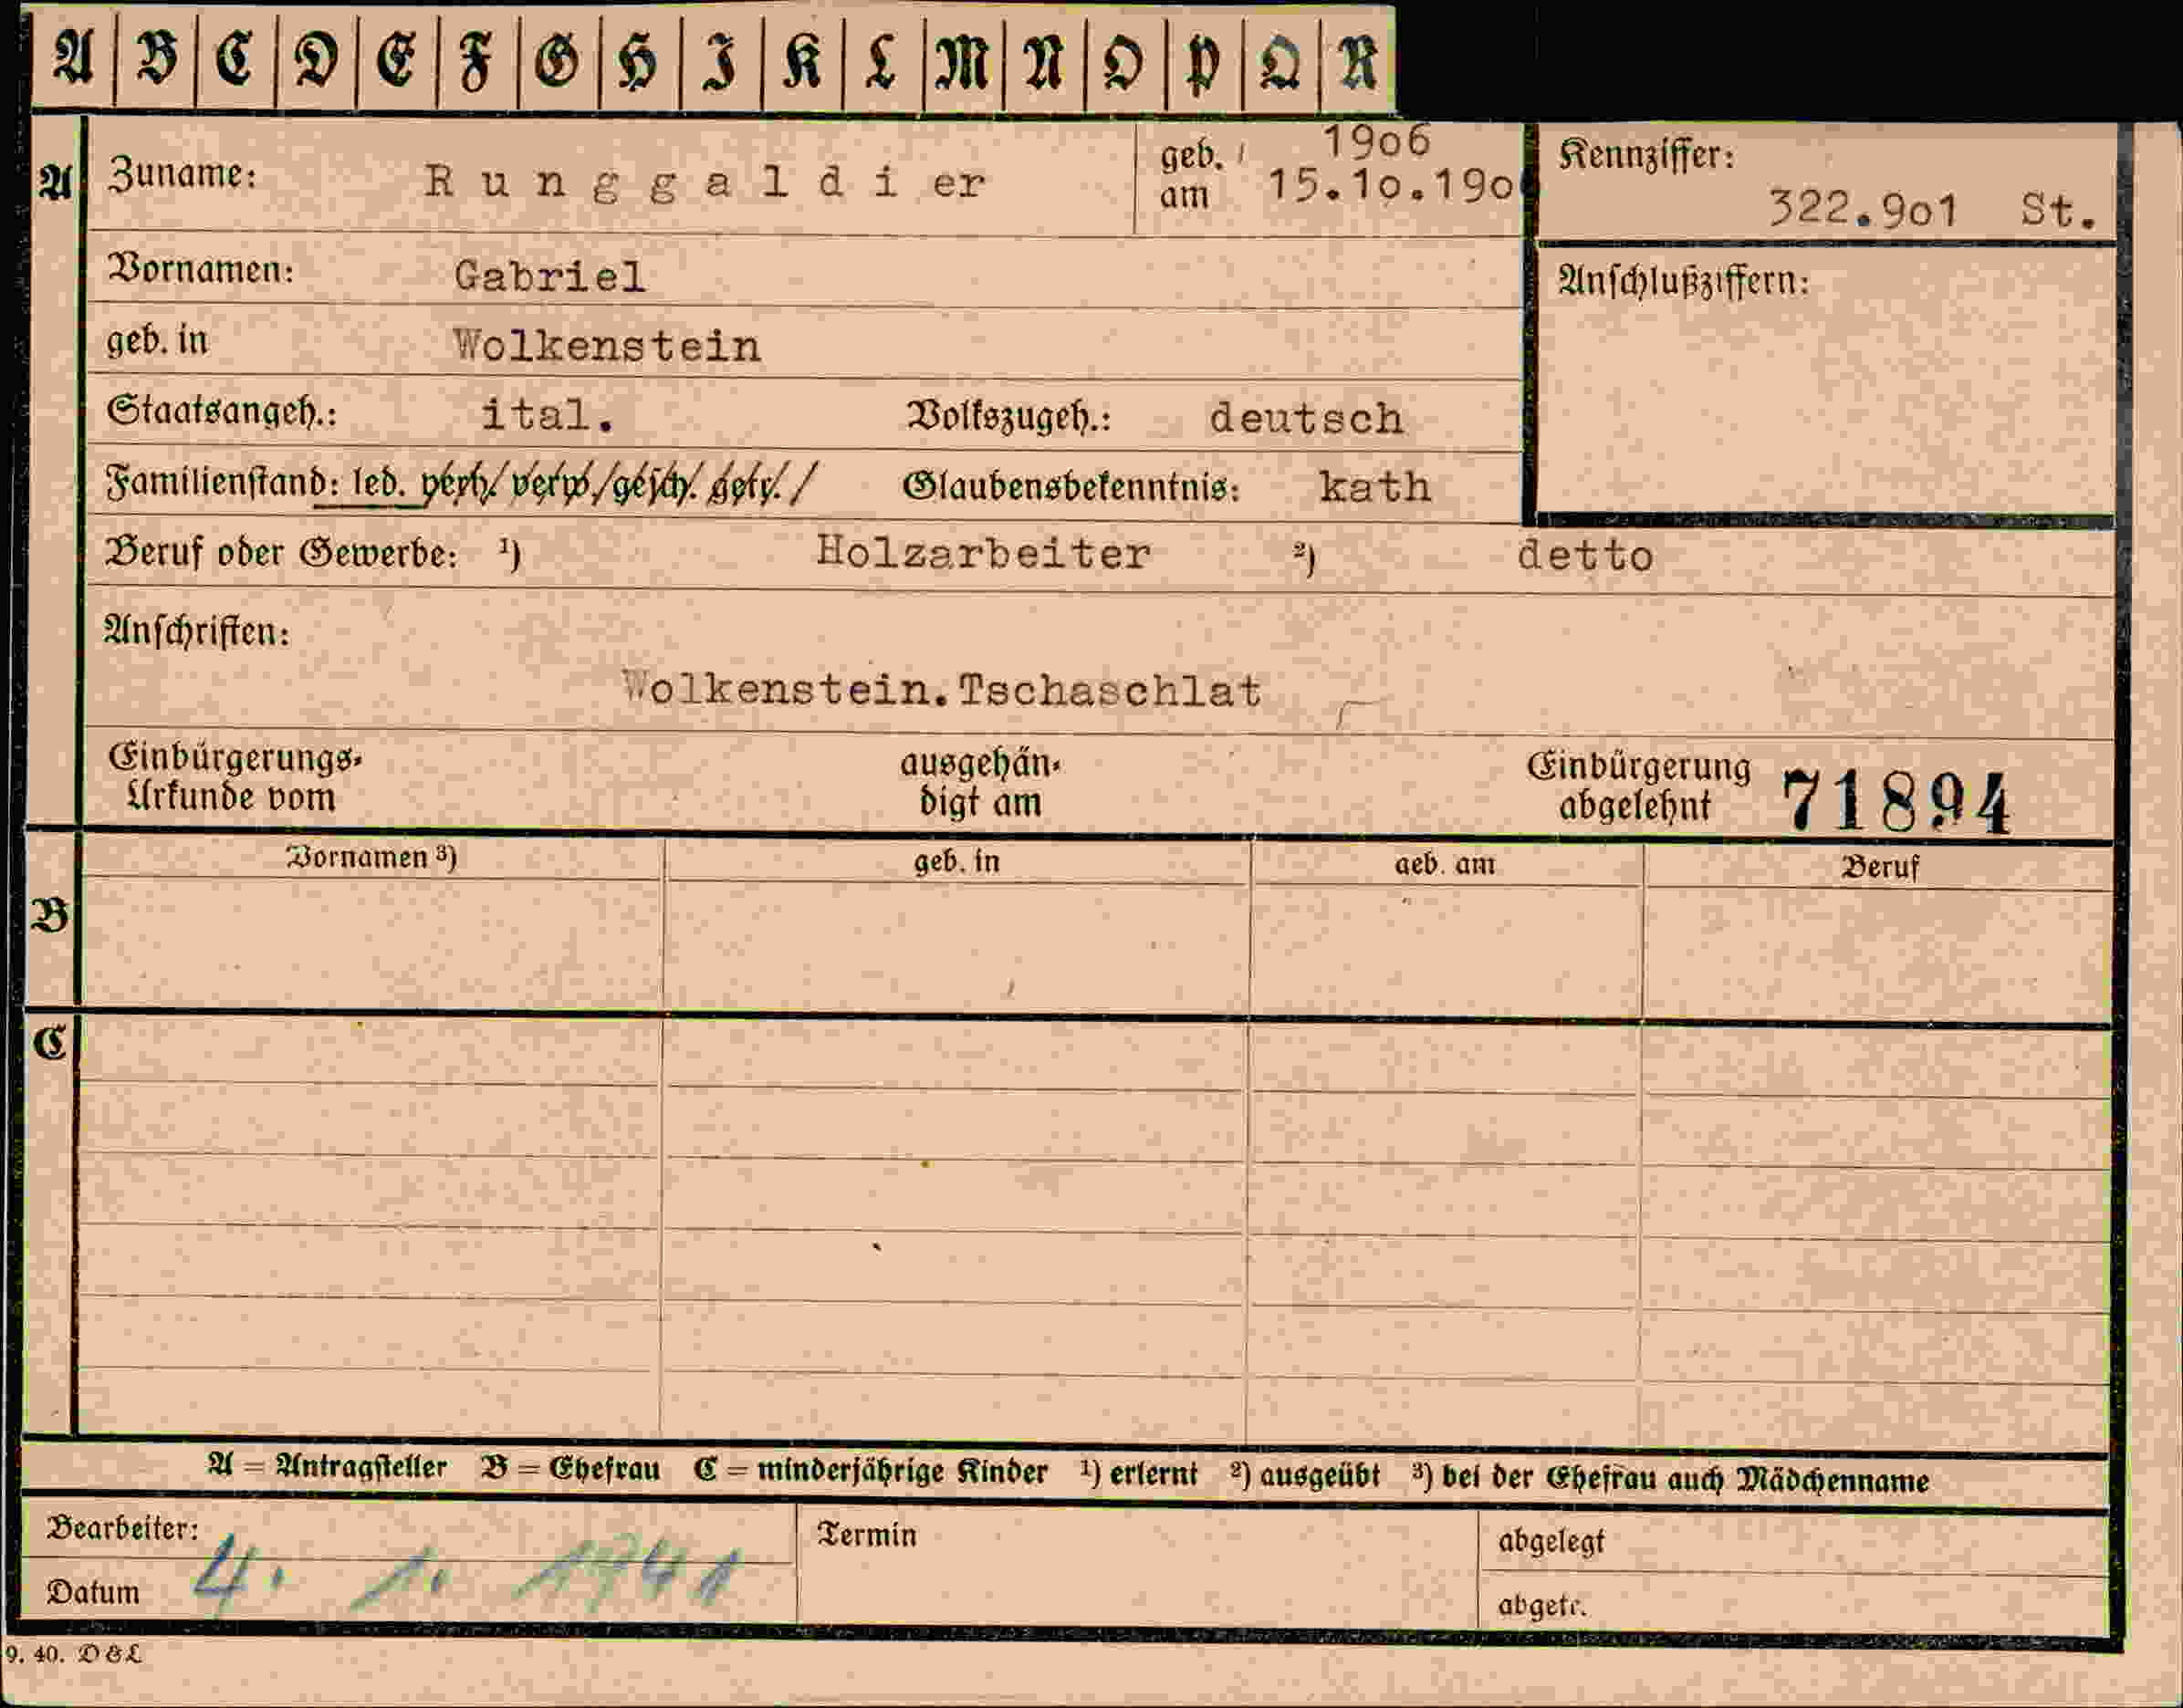 A B C D E F G H I K L M N O P Q R
A Zuname: Runggaldier geb. am 1906 15.10.190 Kennziffer: 322.901 St.
Vornamen: Gabriel Anschlußziffern:
geb. in Wolkenstein
Staatsangeh.: ital. Volkszugeh.: deutsch
Familienstand: led. verh. verw. gesch. getr. Glaubensbekenntnis: kath
Beruf oder Gewerbe: ¹) Holzarbeiter ²) detto
Anschriften:
Wolkenstein.Tschaschlat
Einbürgerungs- ausgehän- Einbürgerung 71894
Urkunde vom digt am abgelehnt
Vornamen ³) geb. in geb. am Beruf
B
C
A = Antragsteller B = Ehefrau C = minderjährige Kinder ¹) erlernt ²) ausgeübt ³) bei der Ehefrau auch Mädchenname
Bearbeiter: Termin abgelegt
Datum 4. 1. 1941 abgetr.
9. 40. D&L